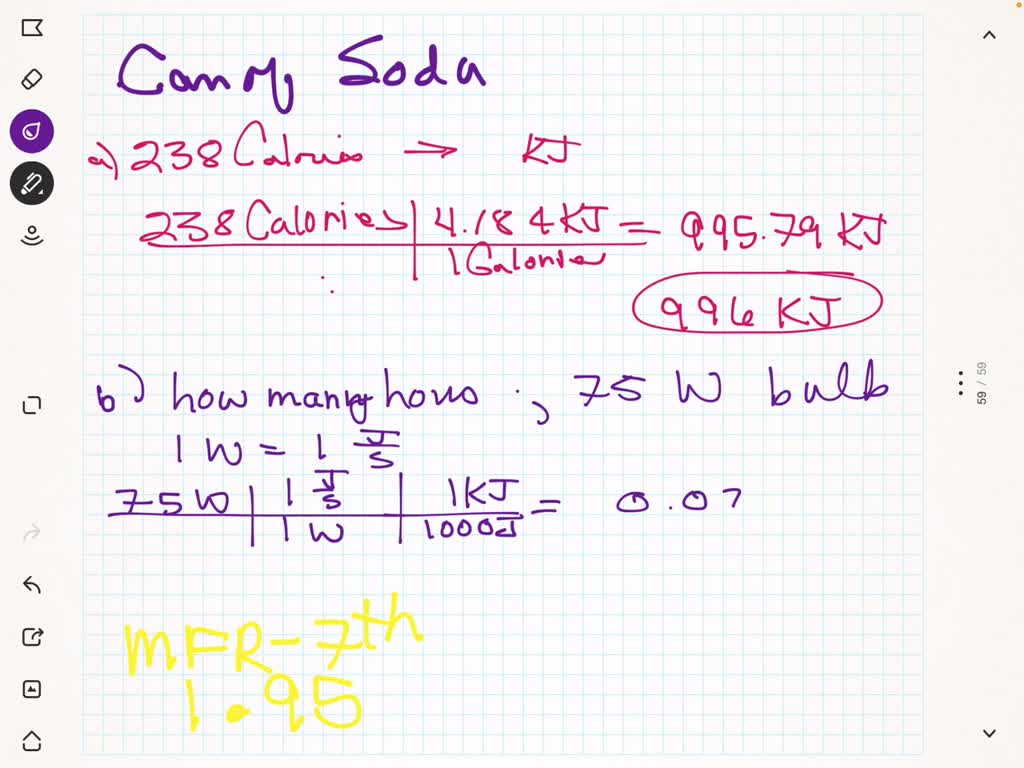 Can of Soda
a) 238 Calories → KJ
238 Calories | 4.184 KJ = 995.79 KJ
1 Calorie
996 KJ
b) how many hours ; 75 W bulb
1 W = 1 J/s
75 W | 1 J/s | 1 KJ = 0.07
1 W | 1000 J
MFR-7th
1.95
59 / 59